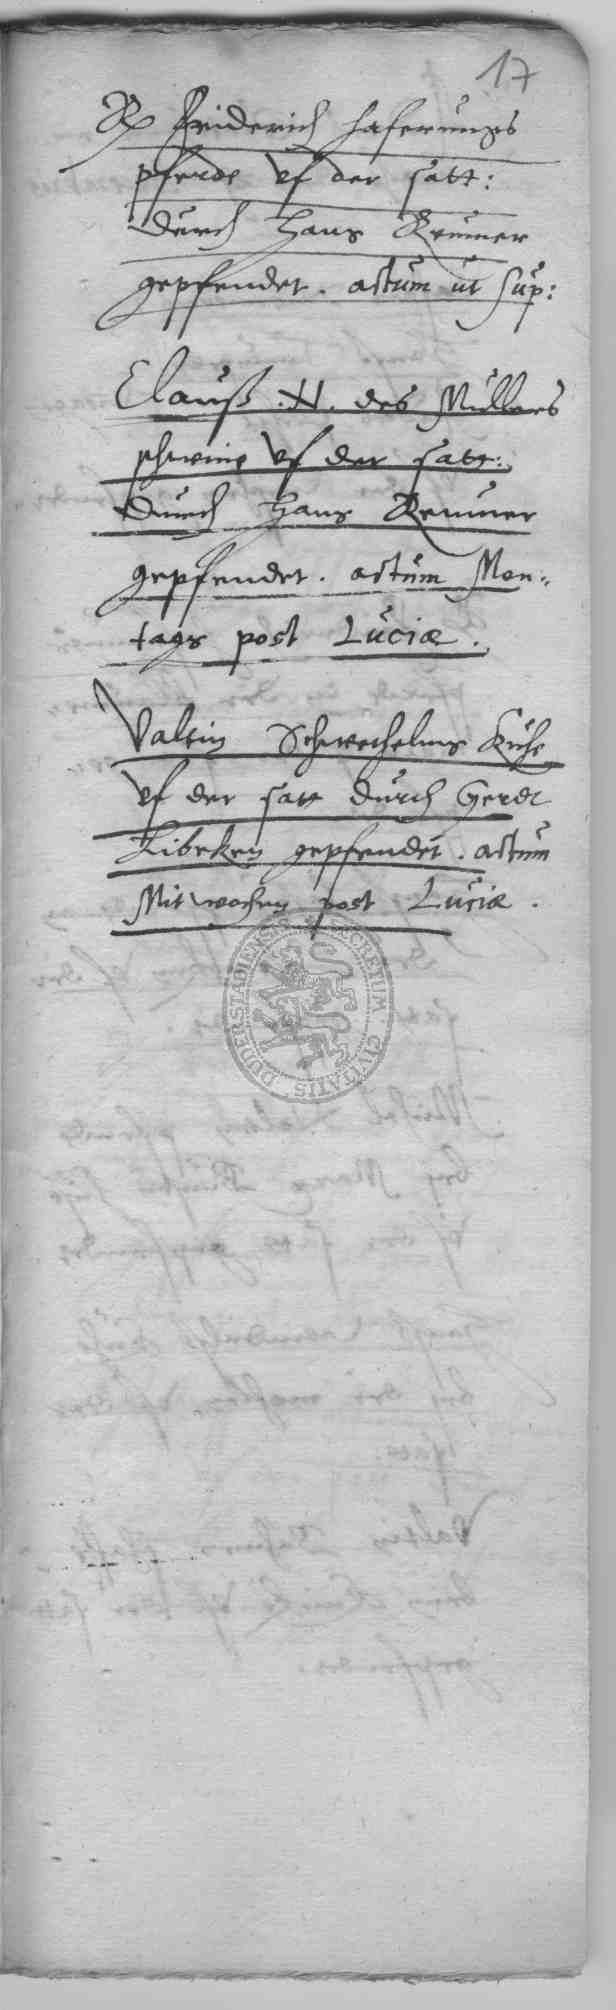 17
Friderich Haferungs
pferde uf der satt:
durch Hans Kremer
gepfendet. actum ut sup:
Clauß .N. des Müllers
schweine uf der satt:
durch Hans Kremer
gepfendet. actum Mon:
tags post Luciæ.
Valtin Schwechelms Kuhe
uf der satt durch Gerdt
Libeken gepfendet. actum
Mitwochen post Luciæ.
SECRETUM CIVITATIS DUDERSTADIENSIS